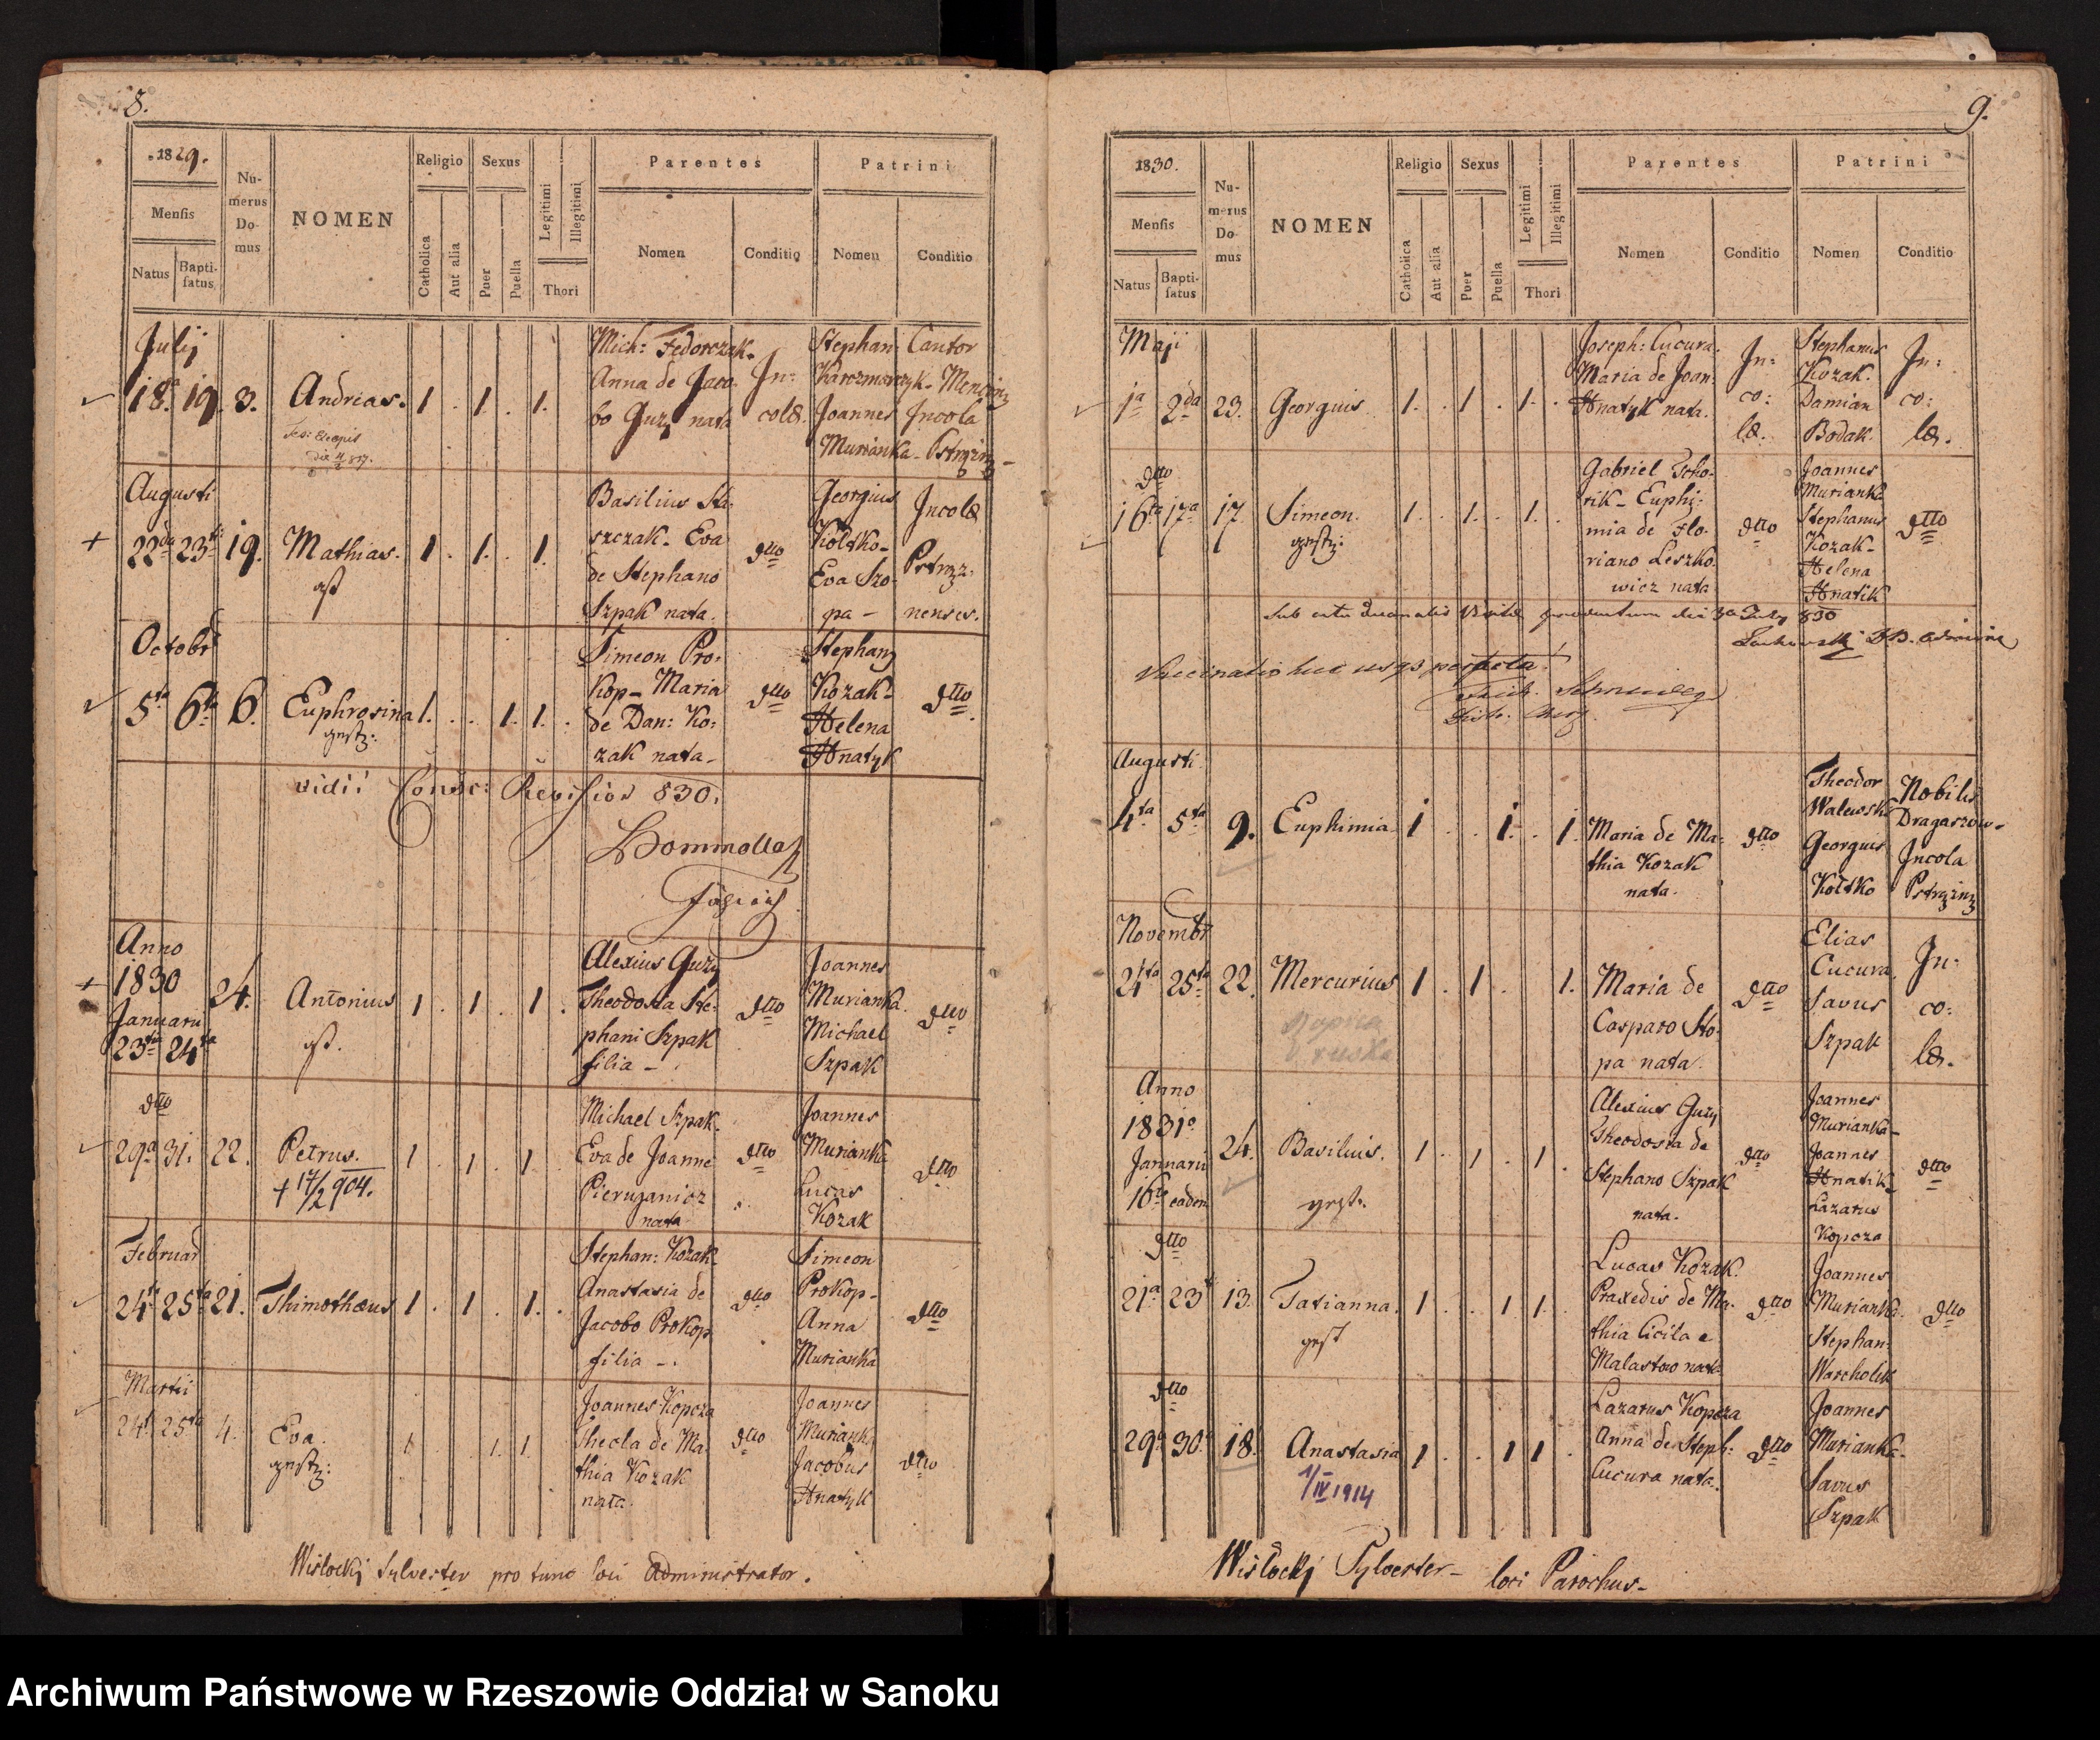 8.
1829.
Mensis
Natus
Bapti-
satus
Nu-
merus
Do-
mus
NOMEN
Religio
Catholica
Aut alia
Sexus
Puer
Puella
Legitimi
Illegitimi
Thori
Parentes
Nomen
Conditio
Patrini
Nomen
Conditio
Julij
18. 19. 3. Andreas. 1 . 1 . 1.
Mich: Fedorczak.
Anna de Jaco-
bo Guzy nata
In:
colæ.
Stephan: Cantor
Karczmarczyk-
Joannes Incola
Murianka-
Augusti
22da 23ti 19. Mathias. 1 . 1. 1.
Basilius Sta-
szczak- Eva
de Stephano
Szpak nata.
dtto
Georgius Incolæ
Koltko-
Eva Szo-
pa - nenses.
Octobr
5ta 6ta 6. Euphrosina 1. . . 1. 1. .
Simeon Pro-
kop- Maria
de Dan: Ko-
zak nata-
dtto
Stephan
Kozak-
Helena
Hnatyk
dtto
vidi! 830.
Anno
1830
Januarii
23tia 24ta 24. Antonius 1 . 1 . 1 .
Alexius Guzy
Theodosia Ste-
phani Szpak
filia -
dtto
Joannes
Murianka.
Michael
Szpak
dtto
dtto
29a 31. 22. Petrus. 1 . 1 . 1
+ 17/2 904.
Michael Szpak.
Eva de Joanne
nata
dtto
Joannes
Murianka
Lucas
Kozak
dtto
Februar
24ta 25ta 21. Thimotheus 1 . 1 . 1. .
Stephan: Kozak
Anastasia de
Jacobo Prokop
filia -.
dtto
Simeon
Prokop-
Anna
Murianka
dtto
Martii
24ta 25ta 4. Eva. 1 1. 1
Joannes Kopcza
Thecla de Ma-
thia Kozak
nata.
dtto
Joannes
Murianka
Jacobus
Hnatyk
dtto
Wisłockij Sylvester pro tunc loci Administrator.
9.
1830.
Mensis
Natus
Bapti-
satus
Nu-
merus
Do-
mus
NOMEN
Religio
Catholica
Aut alia
Sexus
Puer
Puella
Legitimi
Illegitimi
Thori
Parentes
Nomen
Conditio
Patrini
Nomen
Conditio
Maji
1a 2da 23. Georgius 1. . 1 . 1. .
Joseph: Cucura.
Maria de Joan:
Hnatyk nata.
In:
co:
læ.
Stephanus
Kozak.
Damian
Bodak.
In:
co:
læ.
dtto
16ta 17a 17. Simeon. 1. . 1. . 1. .
Gabriel
rik- Euphi-
mia de Flo-
riano Leszko-
wicz nata
dtto
Joannes
Murianka
Stephanus
Kozak-
Helena
Hnatik
dtto
Augusti
4ta 5ta 9. Euphimia 1 . . 1. . 1.
Maria de Ma-
thia Kozak
nata.
dtto
Theodor Nobilis
Georgius Incola
Koltko
Novembr
24ta 25ta 22. Mercurius 1 . 1 . 1.
Maria de
Casparo Sto-
pa nata.
dtto
Elias
Cucura.
Savus
Szpak
In:
co:
læ.
Anno
1831o
Januarii
16ta eadem 24. Basilius. 1 . 1 . 1 .
Alexius Guzy
Theodosia de
Stephano Szpak
nata.
dtto
Joannes
Murianka-
Joannes
Hnatik-
Lazarus
Kopcza
dtto
dtto
21a 23 13. Tatianna. 1 . . 1 1. .
Lucas Kozak.
Praxedis de Ma-
thia Cicila e
Malastow nata
dtto
Joannes
Murianka.
Stephan:
Warcholik
dtto
dtto
29a 30. 18. Anastasia 1 . . 1 1 .
1/IV 1914
Lazarus Kopcza
Anna de Steph:
Cucura nata.
dtto
Joannes
Murianka-
Savus
Szpak
Wisłockij Sylvester- loci Parochus-
Archiwum Państwowe w Rzeszowie Oddział w Sanoku